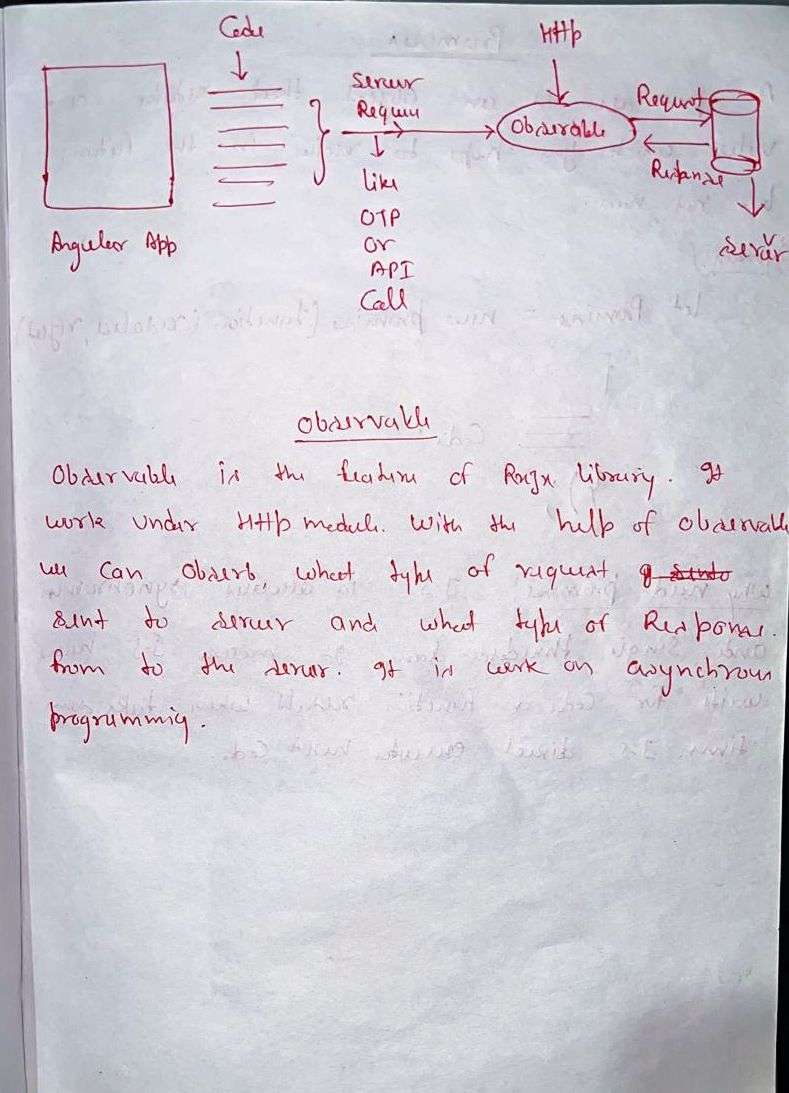 Code
Http
Server
Require
Request
Observable
Response
Like
OTP
Or
API
Call
Angular App
Server
Observable
Observable is the feature of Rxjx library. It
work under Http module. With the help of observable
we can Observb what type of request.
sent to server and what type of Response.
from to the server. It is work on asynchrous
programmig.